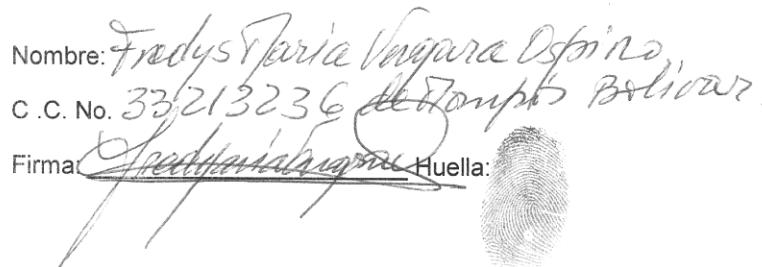 Nombre: Fredys Maria Vergara Ospino
C .C. No. 33213236 de Mompós Bolivar
Firma: Fredys Maria Vergara Huella: